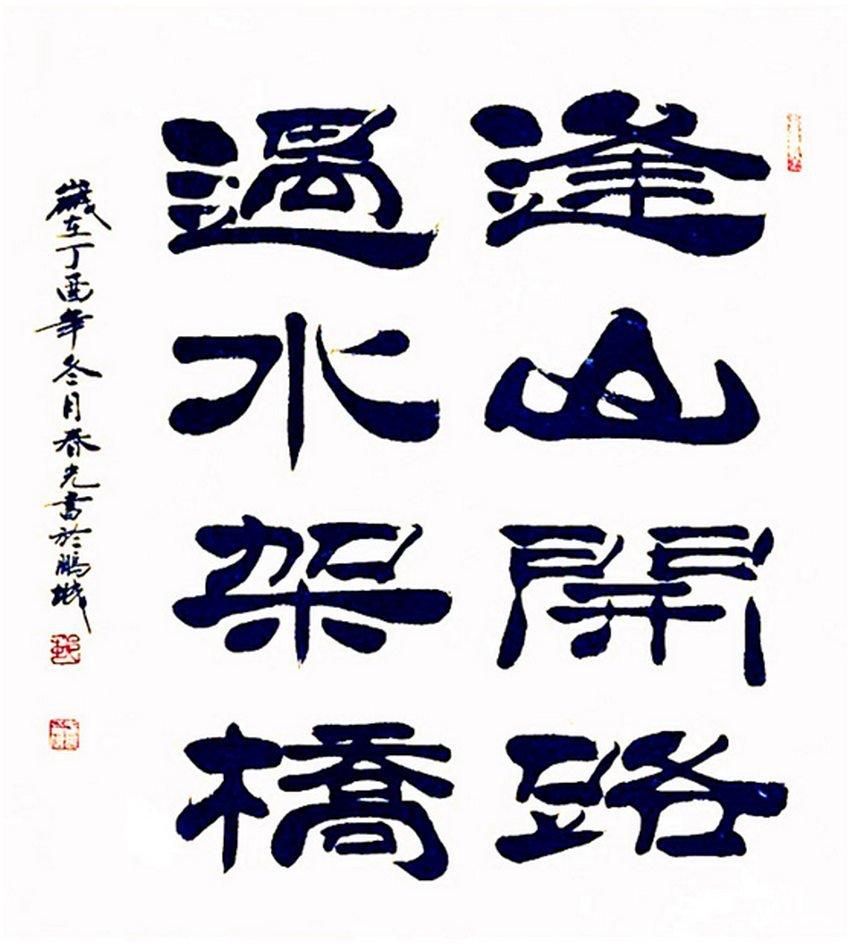 逢山開路
遇水架橋
歲在丁酉年冬月春光書於鵬城